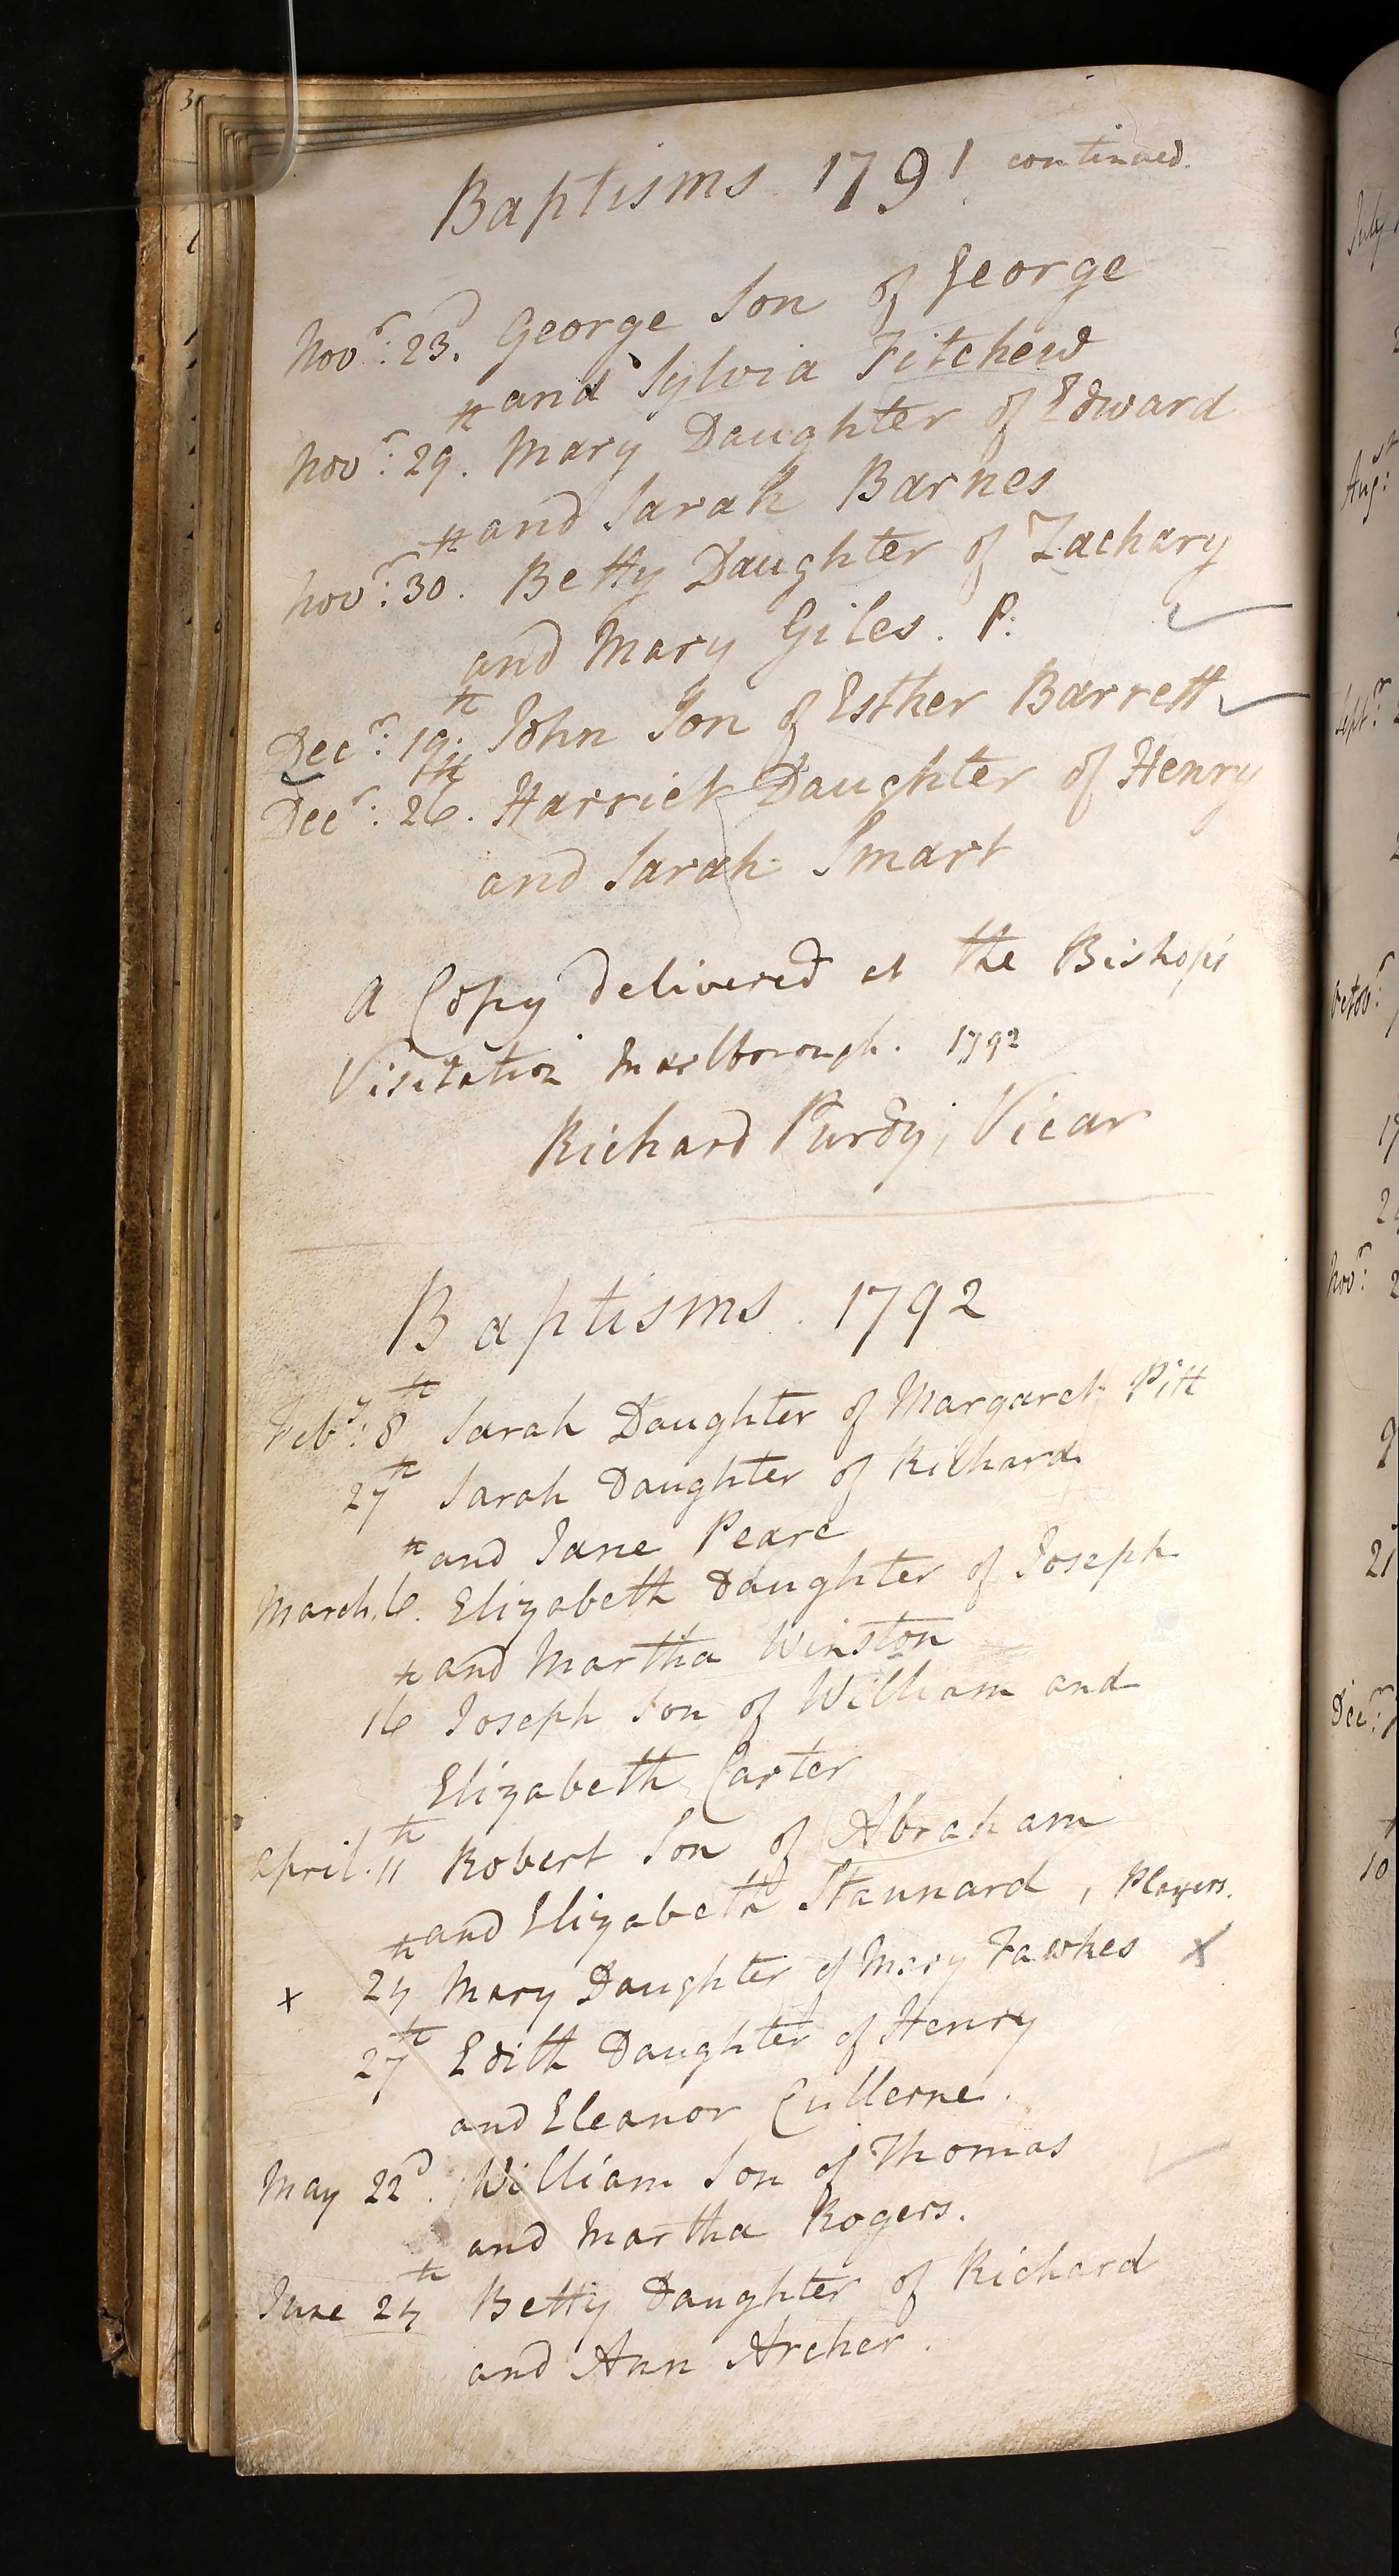 3
Baptisms 1791 continued.
Novr: 23d. George Son of George
and Sylvia Fitchew
Novr: 29th. Mary Daughter of Edward
and Sarah Barnes
Novr: 30th. Betty Daughter of Zachary
and Mary Giles. P:
Decr: 19th. John Son of Esther Barrett
Decr: 26th. Harriet Daughter of Henry
and Sarah Smart
A Copy delivered at the Bishop's
Visitation Marlborough. 1792
Richard Purdy, Vicar
Baptisms. 1792
Feby: 8th Sarah Daughter of Margaret Pitt
27th Sarah Daughter of Richard
and Jane Peare
March. 6th. Elizabeth Daughter of Joseph
and Martha Winston
16th Joseph Son of William and
Elizabeth Carter
April. 11th Robert Son of Abraham
and Elizabeth Stannard, Players.
x 24th Mary Daughter of Mary Fawkes x
27th Edith Daughter of Henry
and Eleanor Cullerne.
May 22d. William Son of Thomas
and Martha Rogers.
June 24th Betty Daughter of Richard
and Ann Archer.
July
Aug: st
Sept:r
Octobr:
Novr: 2
Decr:
10